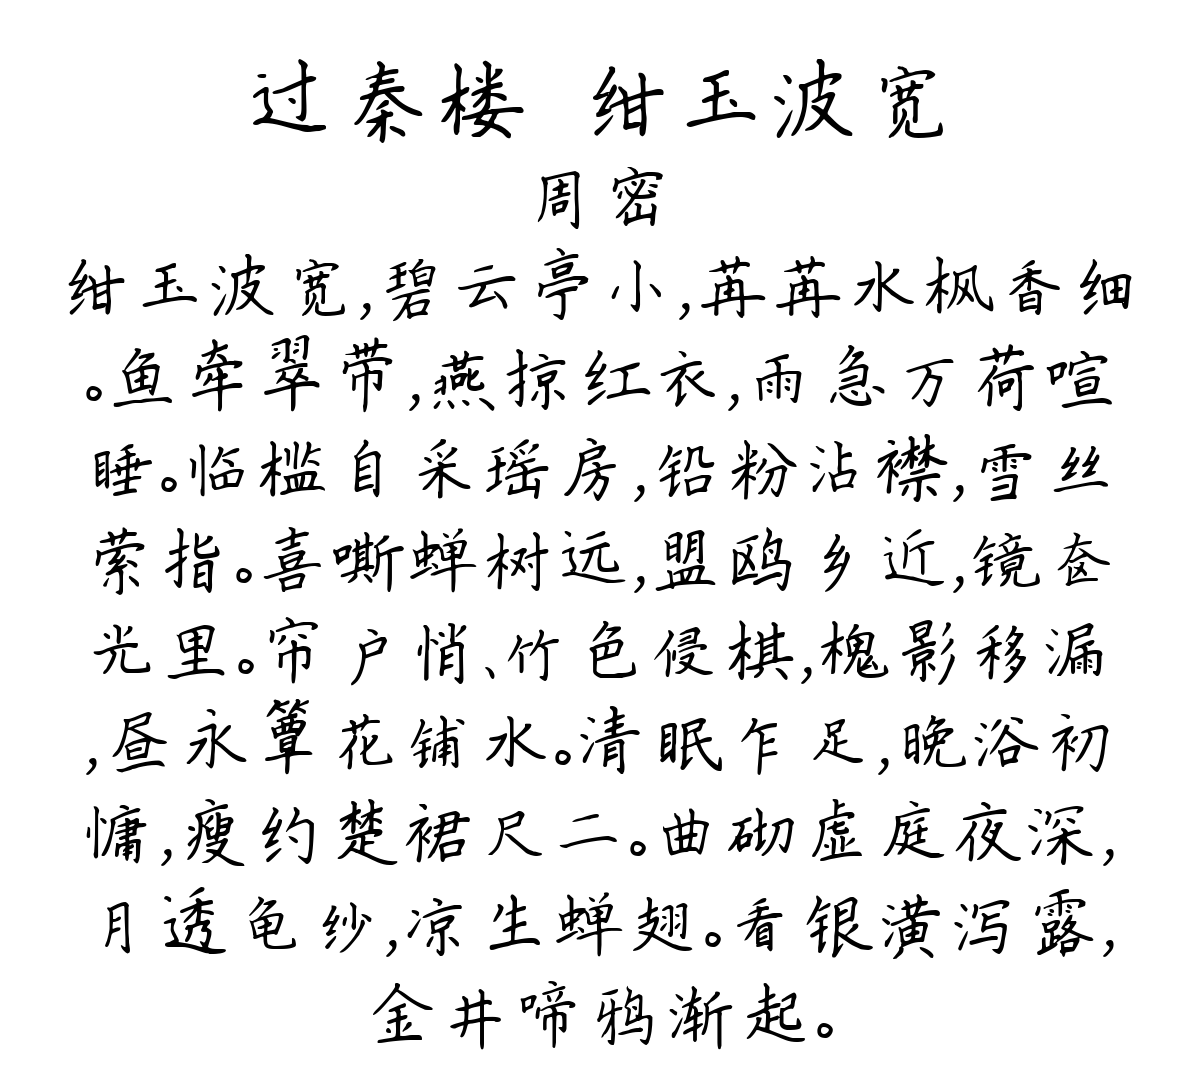 过秦楼 绀玉波宽
周密
绀玉波宽,碧云亭小,苒苒水枫香细
。鱼牵翠带,燕掠红衣,雨急万荷喧
睡。临槛自采瑶房,铅粉沾襟,雪丝
萦指。喜嘶蝉树远,盟鸥乡近,镜奁
光里。帘户悄、竹色侵棋,槐影移漏
,昼永簟花铺水。清眠乍足,晚浴初
慵,瘦约楚裙尺二。曲砌虚庭夜深,
月透龟纱,凉生蝉翅。看银潢泻露,
金井啼鸦渐起。